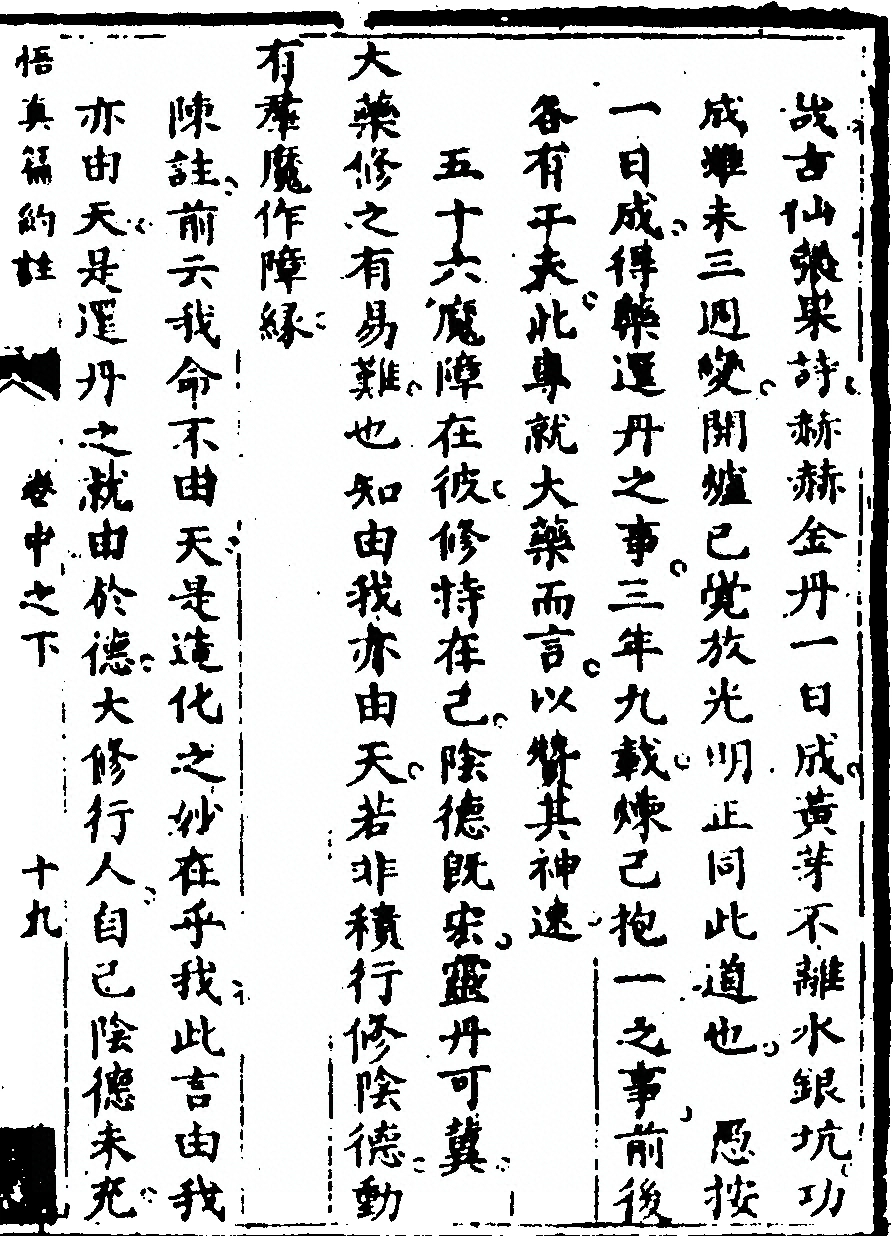 哉古仙張果詩赫赫金丹一日成黃芽不離水銀坑功
成雖未三週變開爐已覺放光明正同此道也　愚按
一日成得藥還丹之事三年九載煉己抱一之事前後
各有工夫此專就大藥而言以贊其神速
五十六魔障在彼修持在己陰德旣宏靈丹可冀
大藥修之有易難也知由我亦由天若非積行修陰德動
有羣魔作障緣
陳註前云我命不由天是造化之妙在乎我此言由我
亦由天是還丹之就由於德大修行人自己陰德未充
悟真篇約註　卷中之下　十九